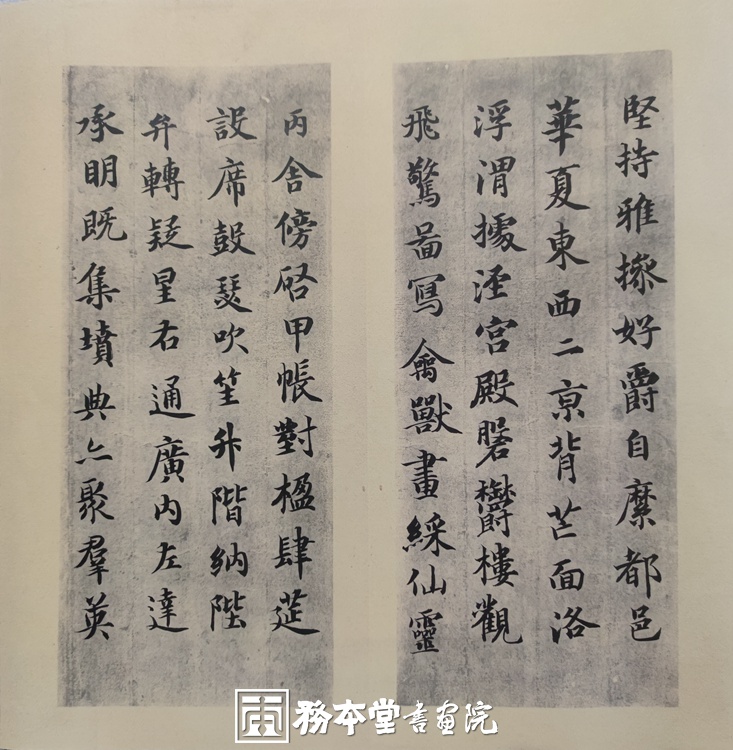 堅持雅操好爵自縻都邑
華夏東西二亰背芒面洛
浮渭據涇宮殿磐鬱樓觀
飛驚圖寫禽獸畫綵仙靈
丙舍傍啓甲帳對楹肆筵
設席鼓瑟吹笙升階納陛
弁轉疑星右通廣內左達
承明既集墳典亦聚羣英
務本堂書画院